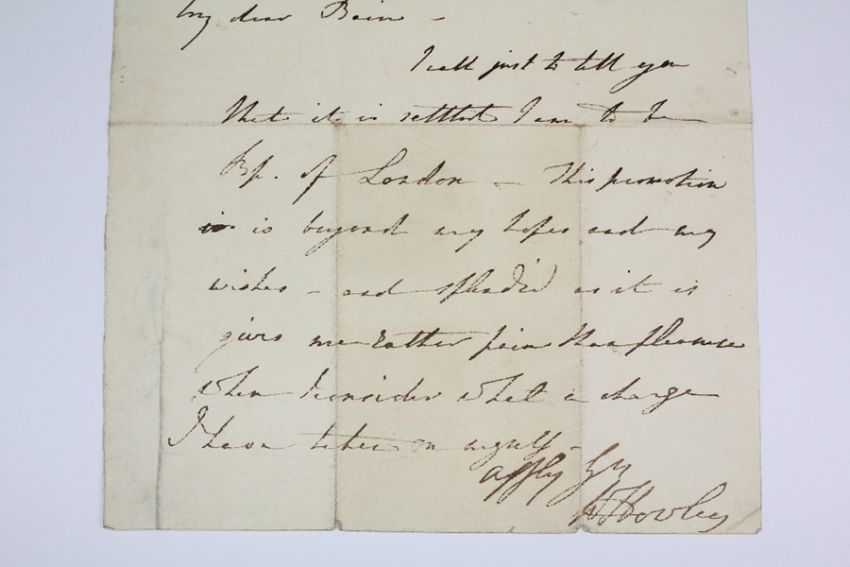 My dear Bain -
I call just to tell you
that it is settled I am to be
Bp. of London - This promotion
is is beyond my hopes and my
wishes - and splendid as it is
gives me rather pain than pleasure
when I consider what a charge
I have taken on myself -
affly
W Howley